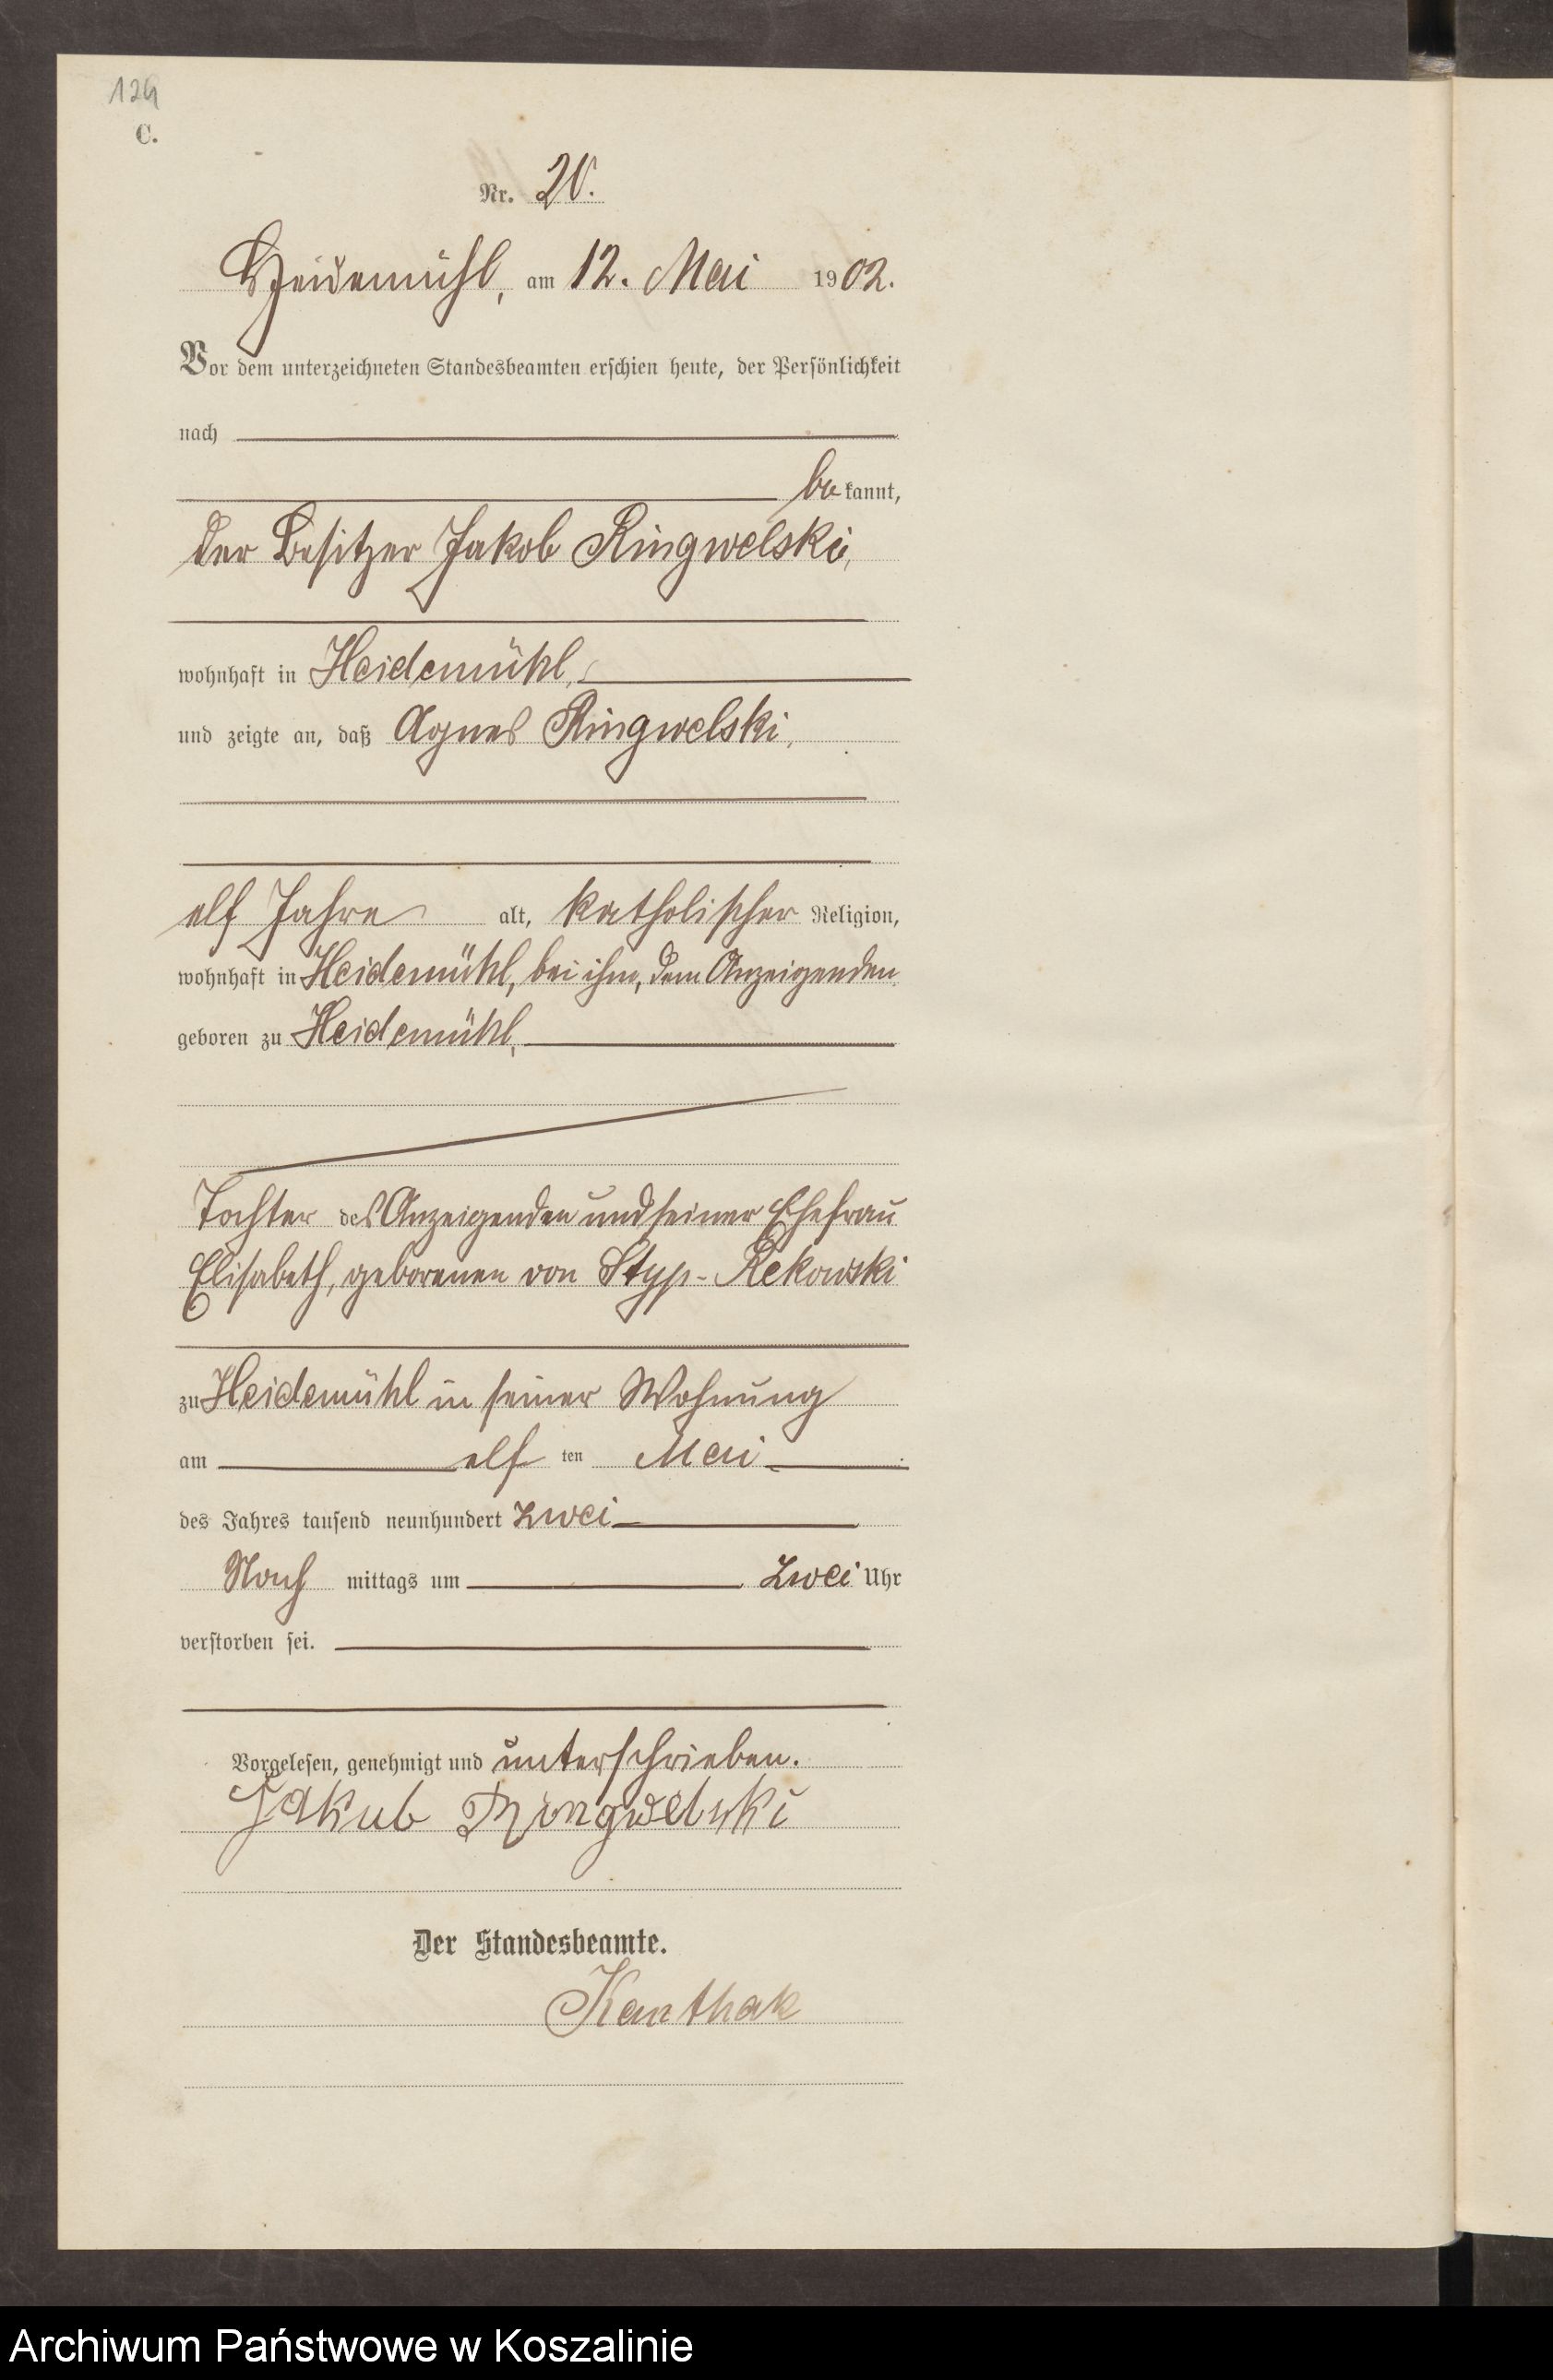 124
C.
Nr. 20.
Heidemühl, am 12. Mai 1902.
Vor dem unterzeichneten Standesbeamten erschien heute, der Persönlichkeit
nach
bekannt,
der Besitzer Jakob Ringwelski,
wohnhaft in Heidemühl,
und zeigte an, daß Agnes Ringwelski,
elf Jahre alt, katholischer Religion,
wohnhaft in Heidemühl, bei ihm, dem Anzeigenden
geboren zu Heidemühl,
Tochter des Anzeigenden und seiner Ehefrau
Elisabeth, geborenen von Styp-Rekowski
zu Heidemühl in seiner Wohnung
am elften Mai
des Jahres tausend neunhundert zwei
Nachmittags um zwei Uhr
verstorben sei.
Vorgelesen, genehmigt und unterschrieben.
Jakub Ringwelski
Der Standesbeamte.
Kanthak
Archiwum Państwowe w Koszalinie